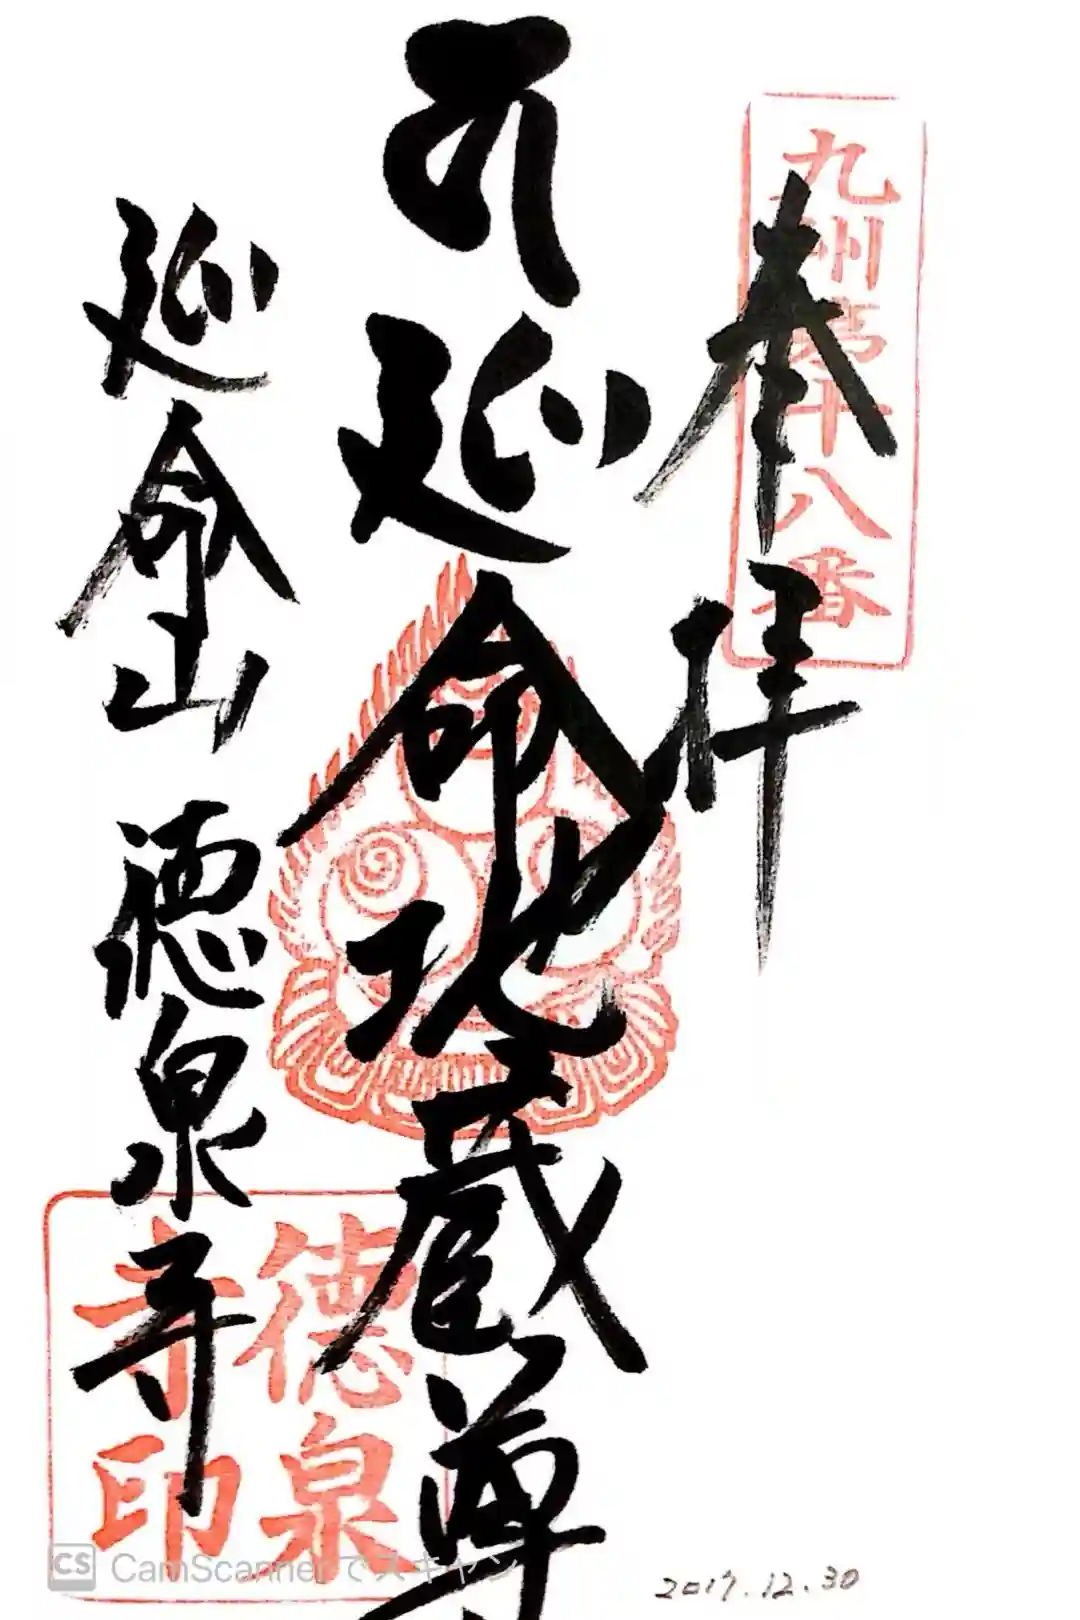 九州第十八番
奉拝
延命地蔵尊
延命山 徳泉寺
徳泉
寺印
CS CamScannerでスキャン
2017.12.30